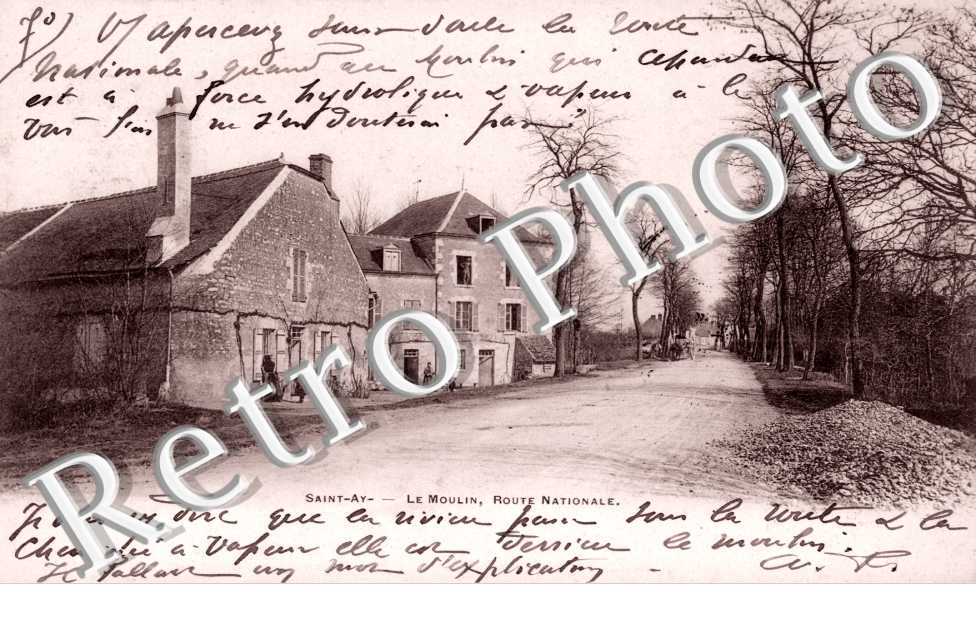 7º) V/ apercevez sans doute la route
Nationale, quand au Moulin qui cependant
est à force hydrolique & vapeur à la
vous l'on ne s'en douterai pas
Retro Photo
SAINT-AY- — LE MOULIN, ROUTE NATIONALE.
donc que la rivière passe sous la route & la
à vapeur elle est derrière le moulin.
Il fallait un mot d'explication